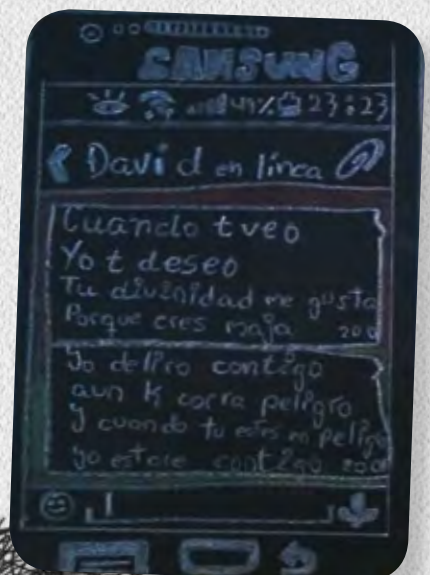 SAMSUNG
49% 23:23
David en línea
Cuando t veo
Yo t deseo
Tu divinidad me gusta
Porque eres maja
Yo deliro contigo
aun k corra peligro
y cuando tu estes en peligro
yo estare contigo